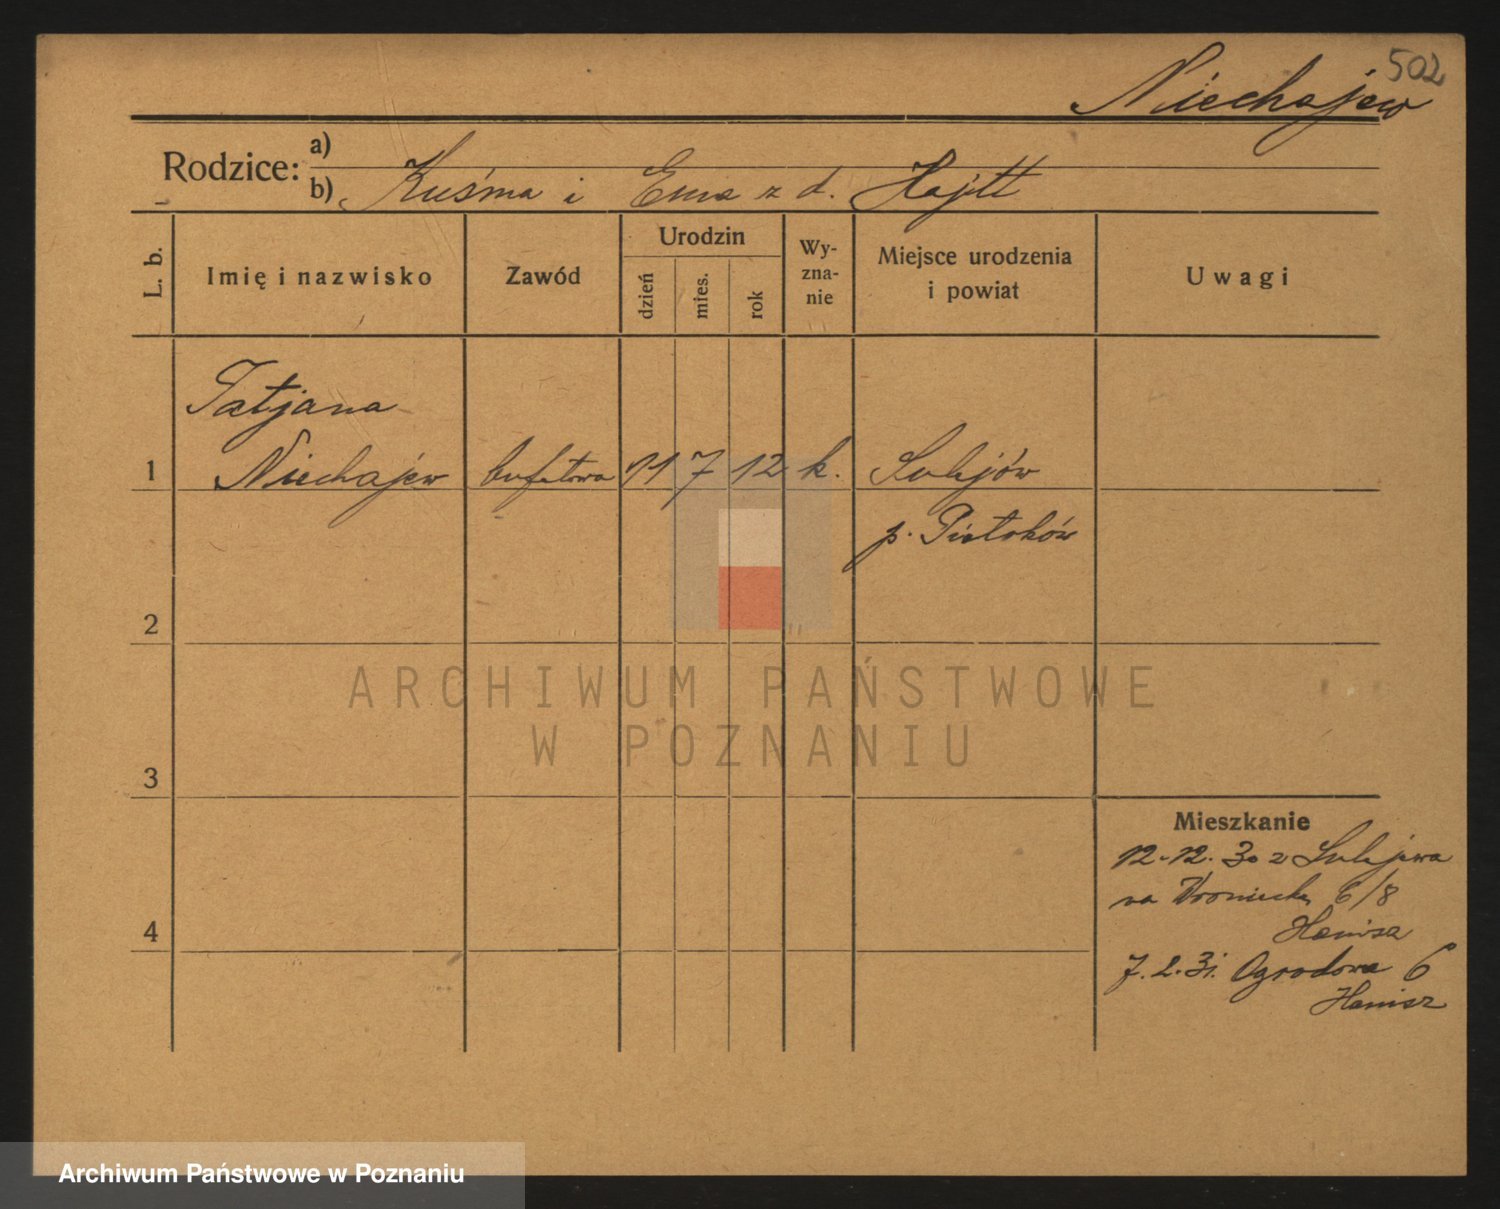 502
Niechajew
Rodzice:
a)
b) Kuśma i Ema z d. Hajtt
L. b.
Imię i nazwisko
Zawód
Urodzin
dzień
mies.
rok
Wy-
zna-
nie
Miejsce urodzenia
i powiat
Uwagi
Tatjana
1 Niechajew bufetowa 11 7 12 k. Sulejów
p. Piotrków
2
ARCHIWUM PAŃSTWOWE
W POZNANIU
3
4
Mieszkanie
12.12.30 z Sulejewa
na Wroniecką 6/8
Hanisza
7.2.31. Ogrodowa 6
Hanisz
Archiwum Państwowe w Poznaniu